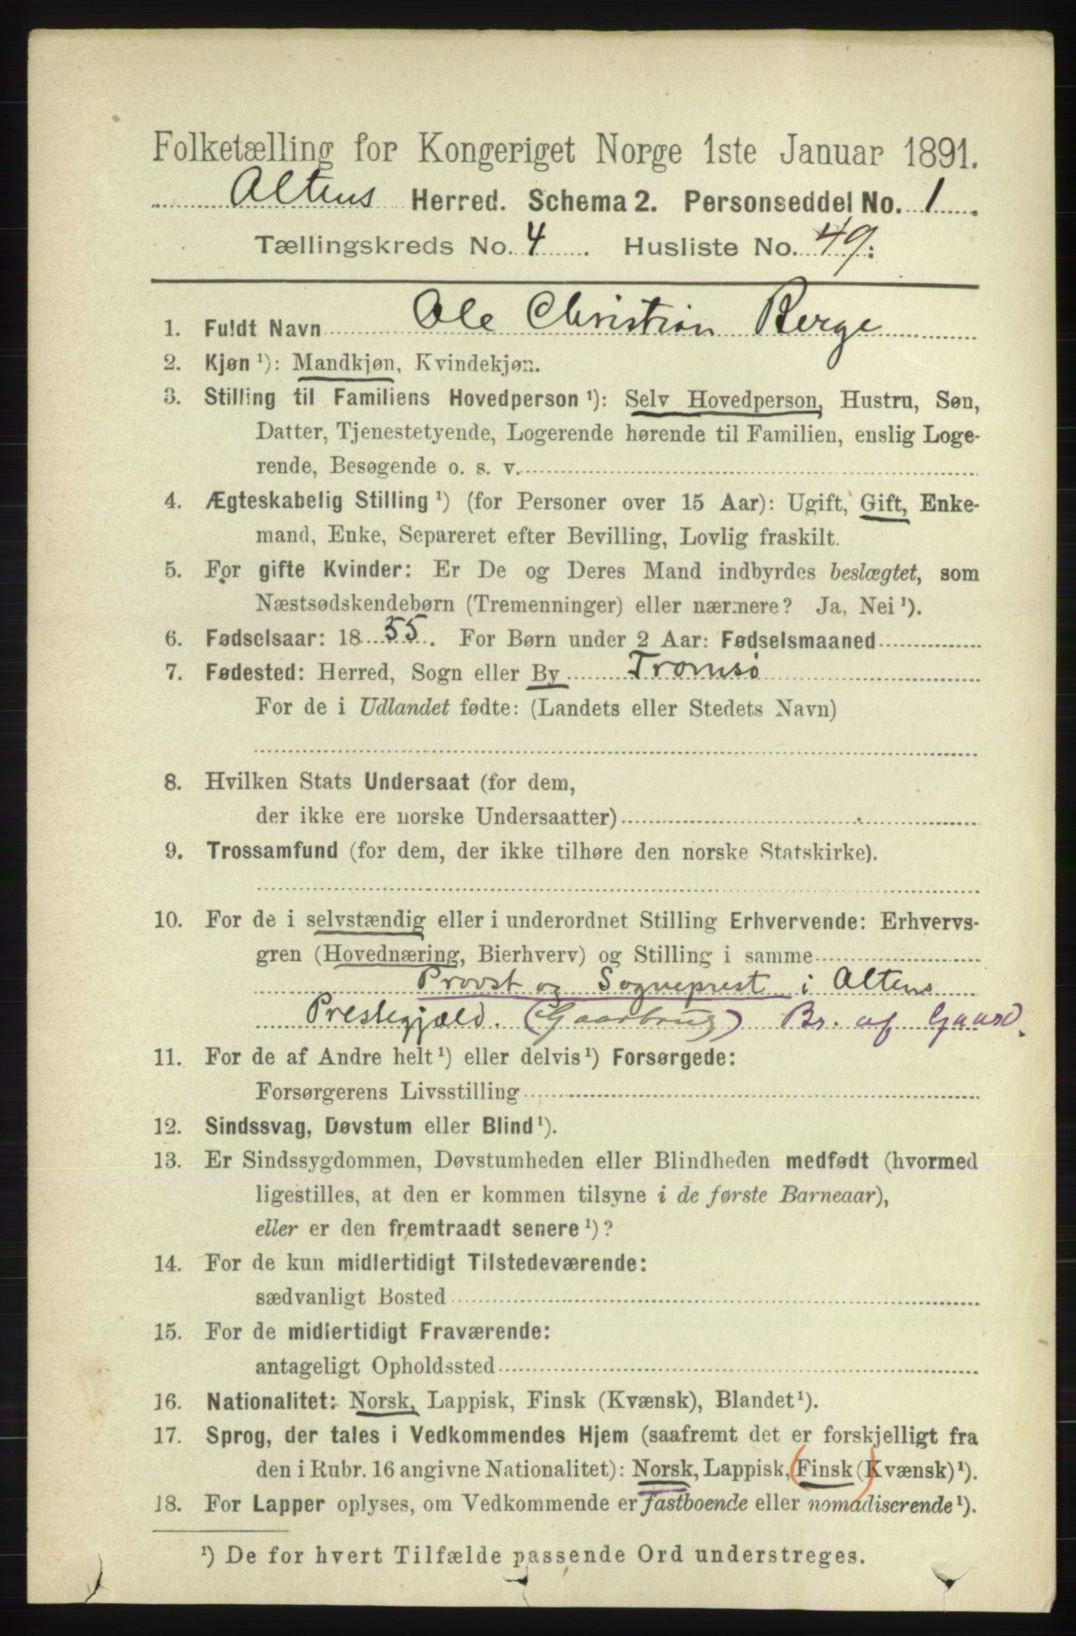 Folketælling for Kongeriget Norge 1ste Januar 1891.
Altens Herred. Schema 2. Personseddel No. 1.
Tællingskreds No. 4. Husliste No. 49.
1. Fuldt Navn Ole Christian Berge
2. Kjøn ¹): Mandkjøn, Kvindekjøn.
3. Stilling til Familiens Hovedperson ¹): Selv Hovedperson, Hustru, Søn,
Datter, Tjenestetyende, Logerende hørende til Familien, enslig Loge-
rende, Besøgende o. s. v.
4. Ægteskabelig Stilling ¹) (for Personer over 15 Aar): Ugift, Gift, Enke-
mand, Enke, Separeret efter Bevilling, Lovlig fraskilt.
5. For gifte Kvinder: Er De og Deres Mand indbyrdes beslægtet, som
Næstsødskendebørn (Tremenninger) eller nærmere? Ja, Nei ¹).
6. Fødselsaar: 1855. For Børn under 2 Aar: Fødselsmaaned
7. Fødested: Herred, Sogn eller By Tromsø
For de i Udlandet fødte: (Landets eller Stedets Navn)
8. Hvilken Stats Undersaat (for dem,
der ikke ere norske Undersaatter)
9. Trossamfund (for dem, der ikke tilhøre den norske Statskirke).
10. For de i selvstændig eller i underordnet Stilling Erhvervende: Erhvervs-
gren (Hovednæring, Bierhverv) og Stilling i samme
Provst og Sogneprest i Altens
Prestegjæld. (Gaarbrug) Br. af Gaard.
11. For de af Andre helt ¹) eller delvis ¹) Forsørgede:
Forsørgerens Livsstilling
12. Sindssvag, Døvstum eller Blind ¹).
13. Er Sindssygdommen, Døvstumheden eller Blindheden medfødt (hvormed
ligestilles, at den er kommen tilsyne i de første Barneaar),
eller er den fremtraadt senere ¹)?
14. For de kun midlertidigt Tilstedeværende:
sædvanligt Bosted
15. For de midlertidigt Fraværende:
antageligt Opholdssted
16. Nationalitet: Norsk, Lappisk, Finsk (Kvænsk), Blandet ¹).
17. Sprog, der tales i Vedkommendes Hjem (saafremt det er forskjelligt fra
den i Rubr. 16 angivne Nationalitet): Norsk, Lappisk, Finsk (Kvænsk) ¹).
18. For Lapper oplyses, om Vedkommende er fastboende eller nomadiserende ¹).
¹) De for hvert Tilfælde passende Ord understreges.